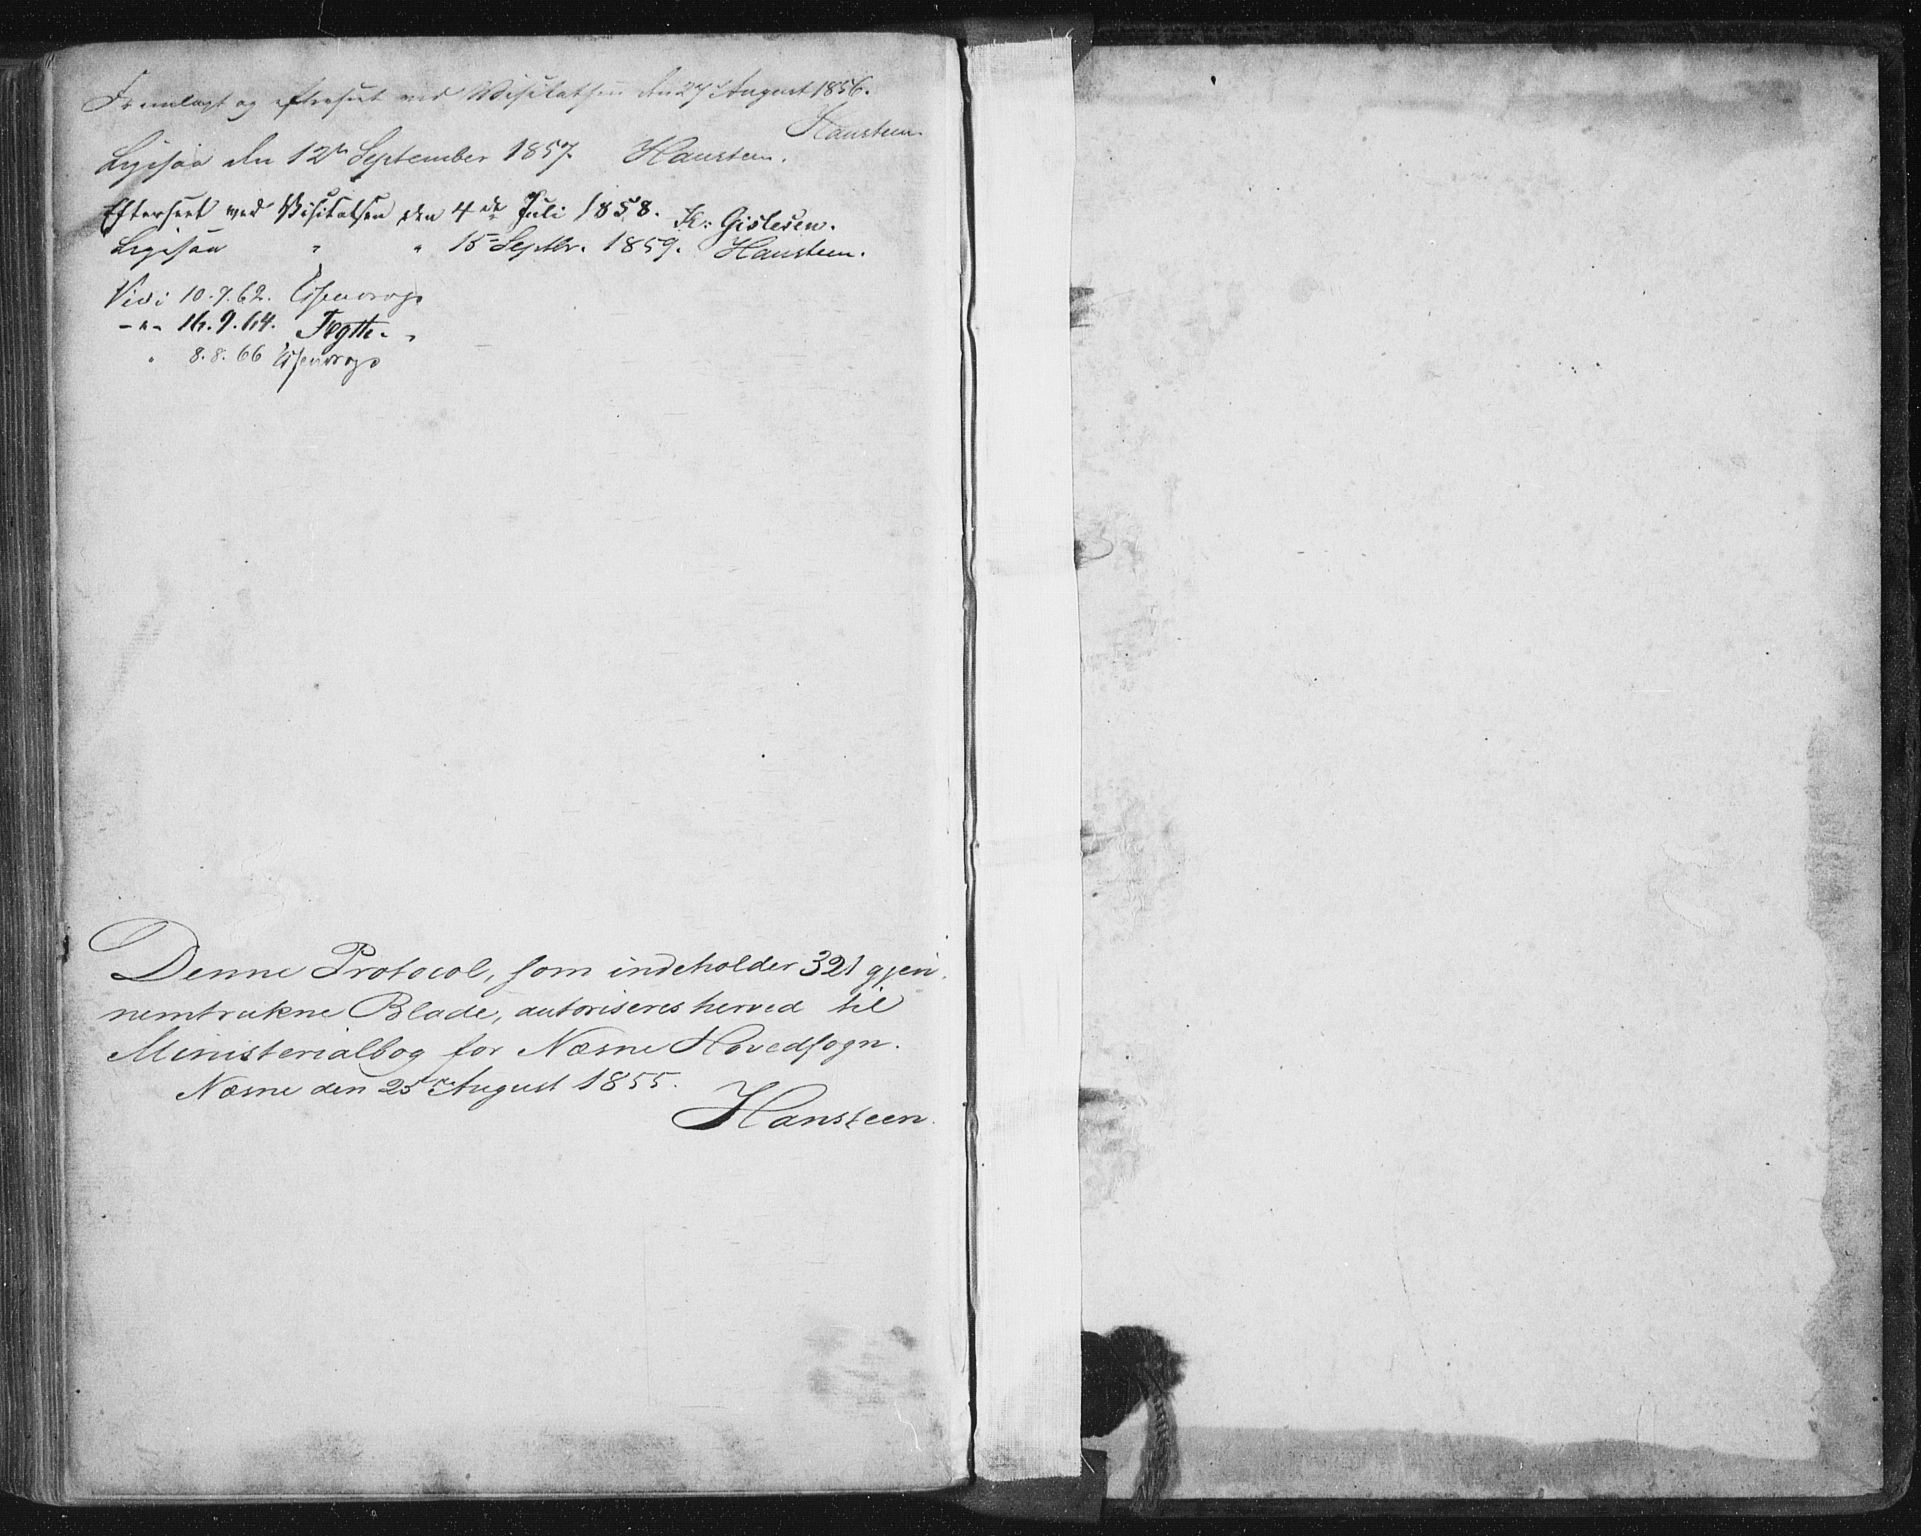 Fremlagt og efterseet ved Visitatsen den 27 August 1856.
Hansteen.
Ligesaa den 12te September 1857. Hansteen.
Efterseet ved Visitatsen den 4de Juli 1858. Kr: Gislesen.
Ligesaa " " 15 Septbr. 1859. Hansteen.
Vidi 10.7.62. Essendrop
-"- 16.9.64.
" 8.8.66 Essendrop
Denne Protocol, som indeholder 321 gjen-
nemtrukne Blade, autoriseres herved til
Ministerialbog for Næsne Hovedsogn.
Næsne den 25de August 1855.
Hansteen.